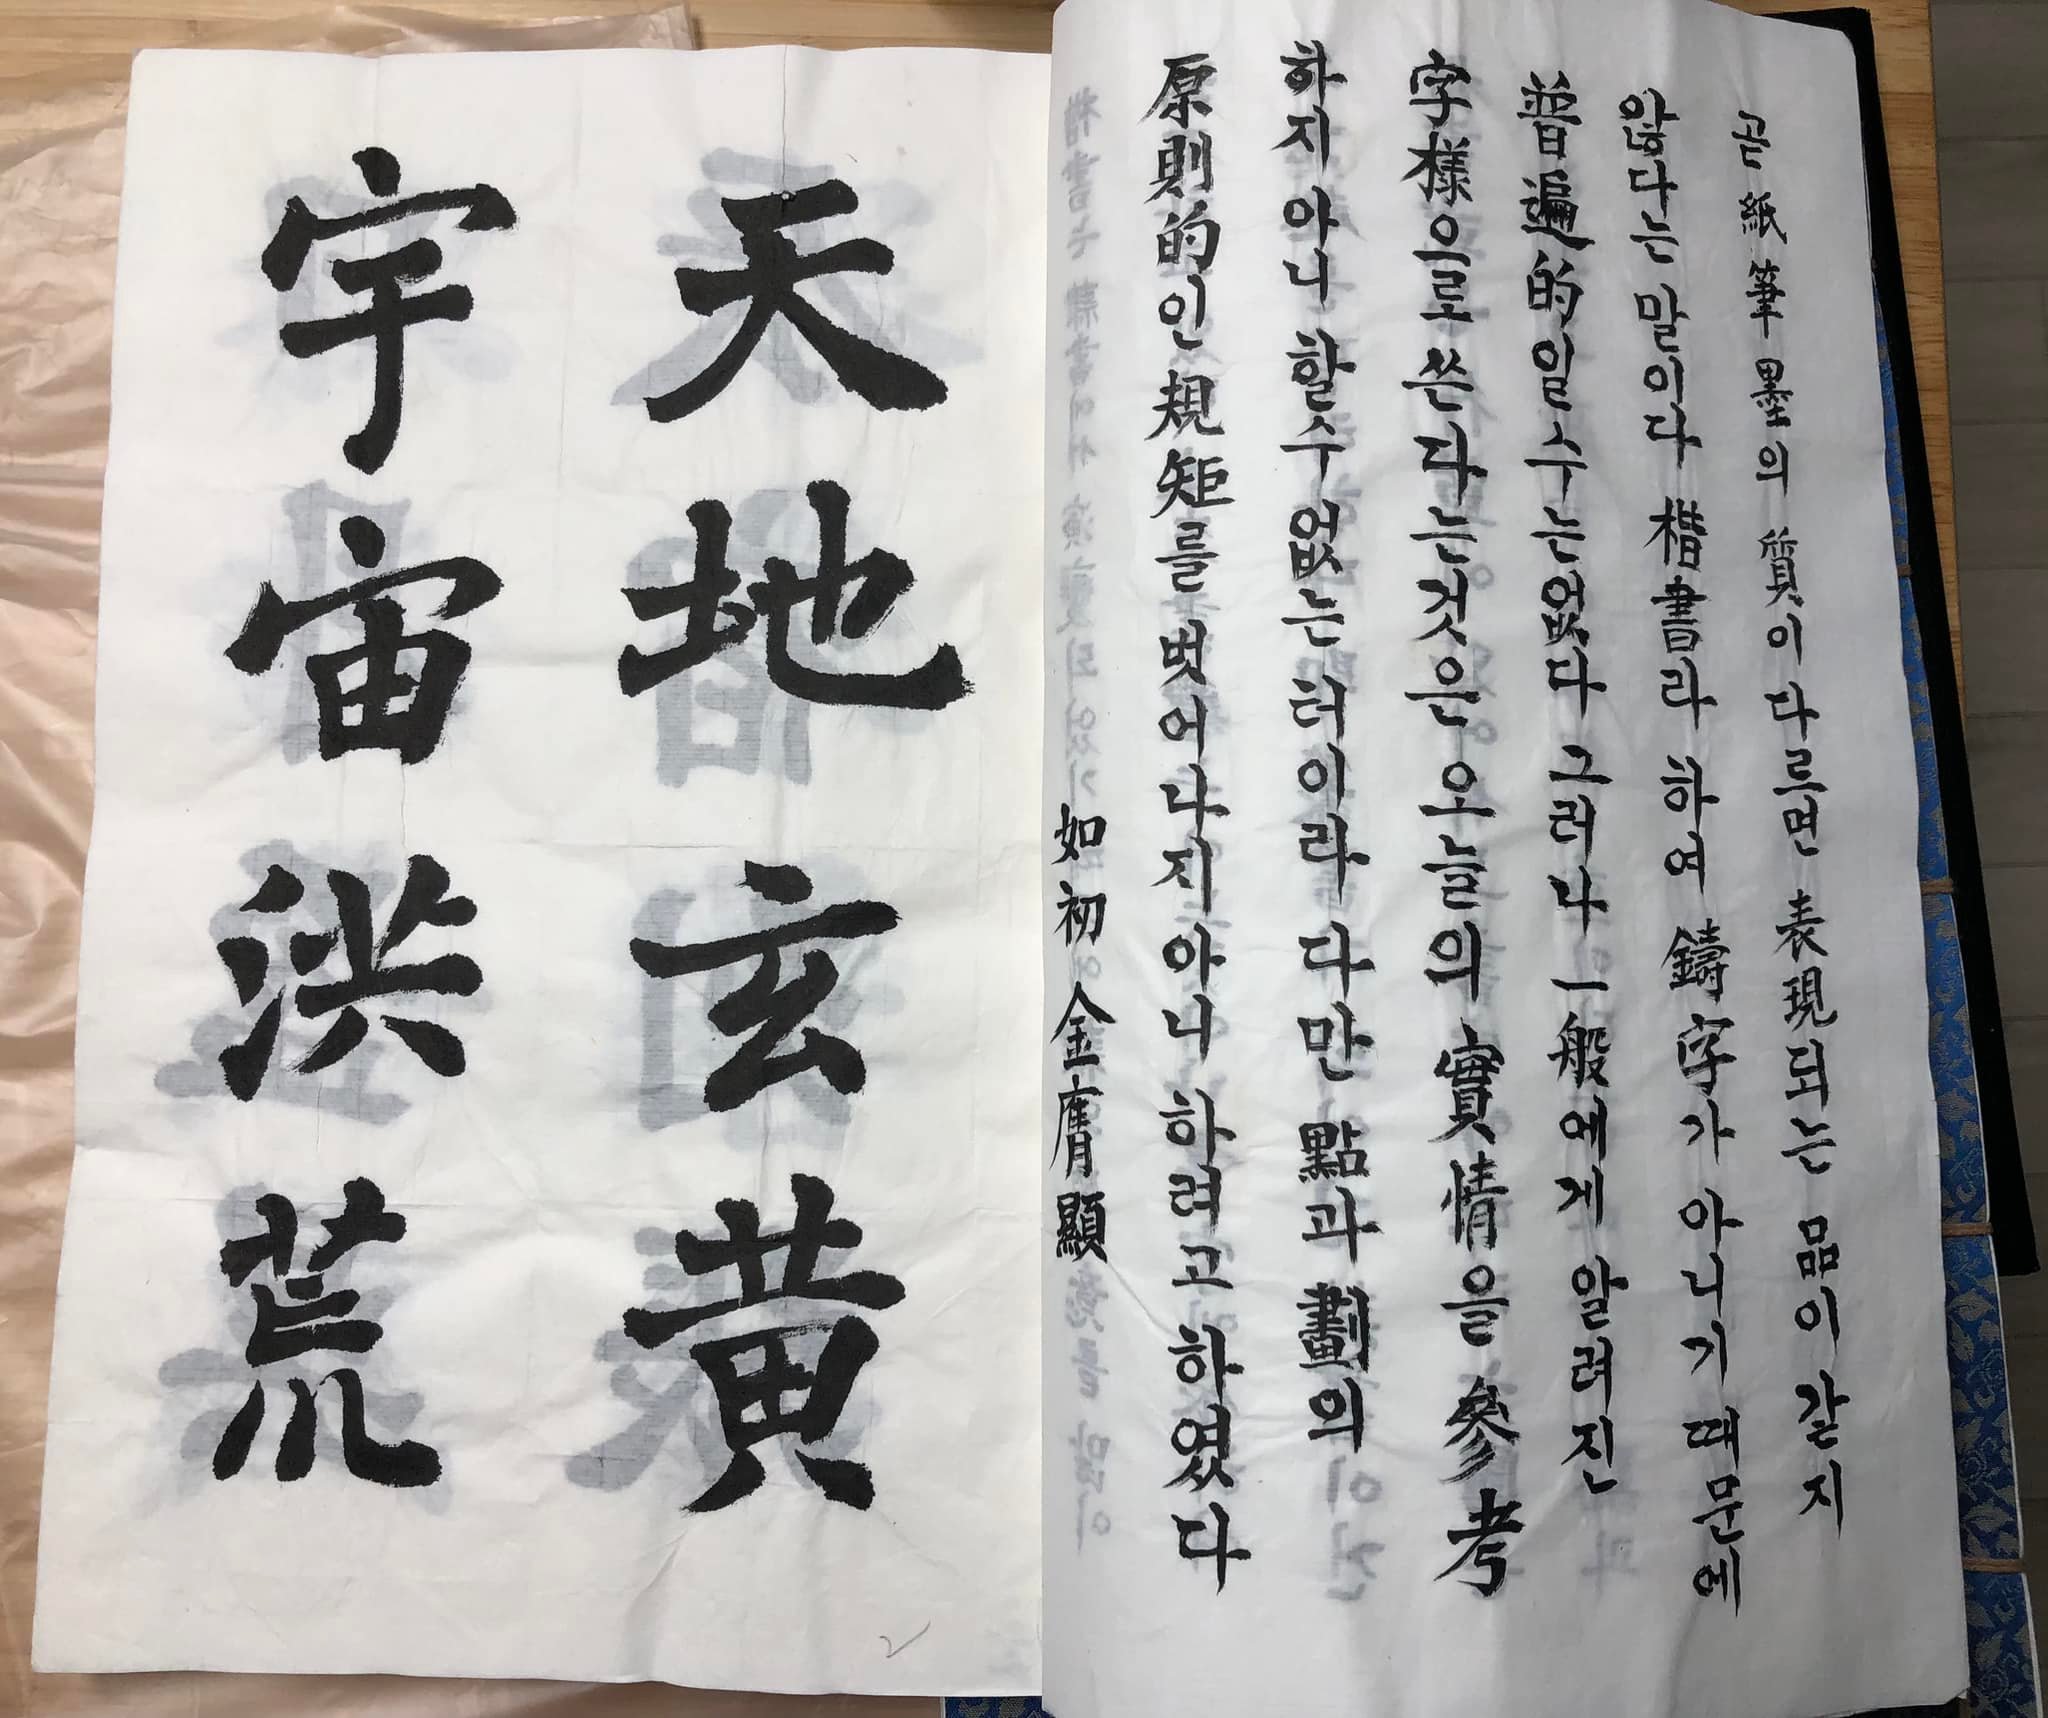 곧 紙筆墨의 質이 다르면 表現되는 品이 같지
않다는 말이다 楷書라 하여 鑄字가 아니기 때문에
普遍的일 수는 없다 그러나 一般에게 알려진
字樣으로 쓴다는 것은 오늘의 實情을 參考
하지 아니 할 수 없는 터이라 다만 點과 劃의
原則的인 規矩를 벗어나지 아니 하려고 하였다
如初 金膺顯
天地玄黄
宇宙洪荒